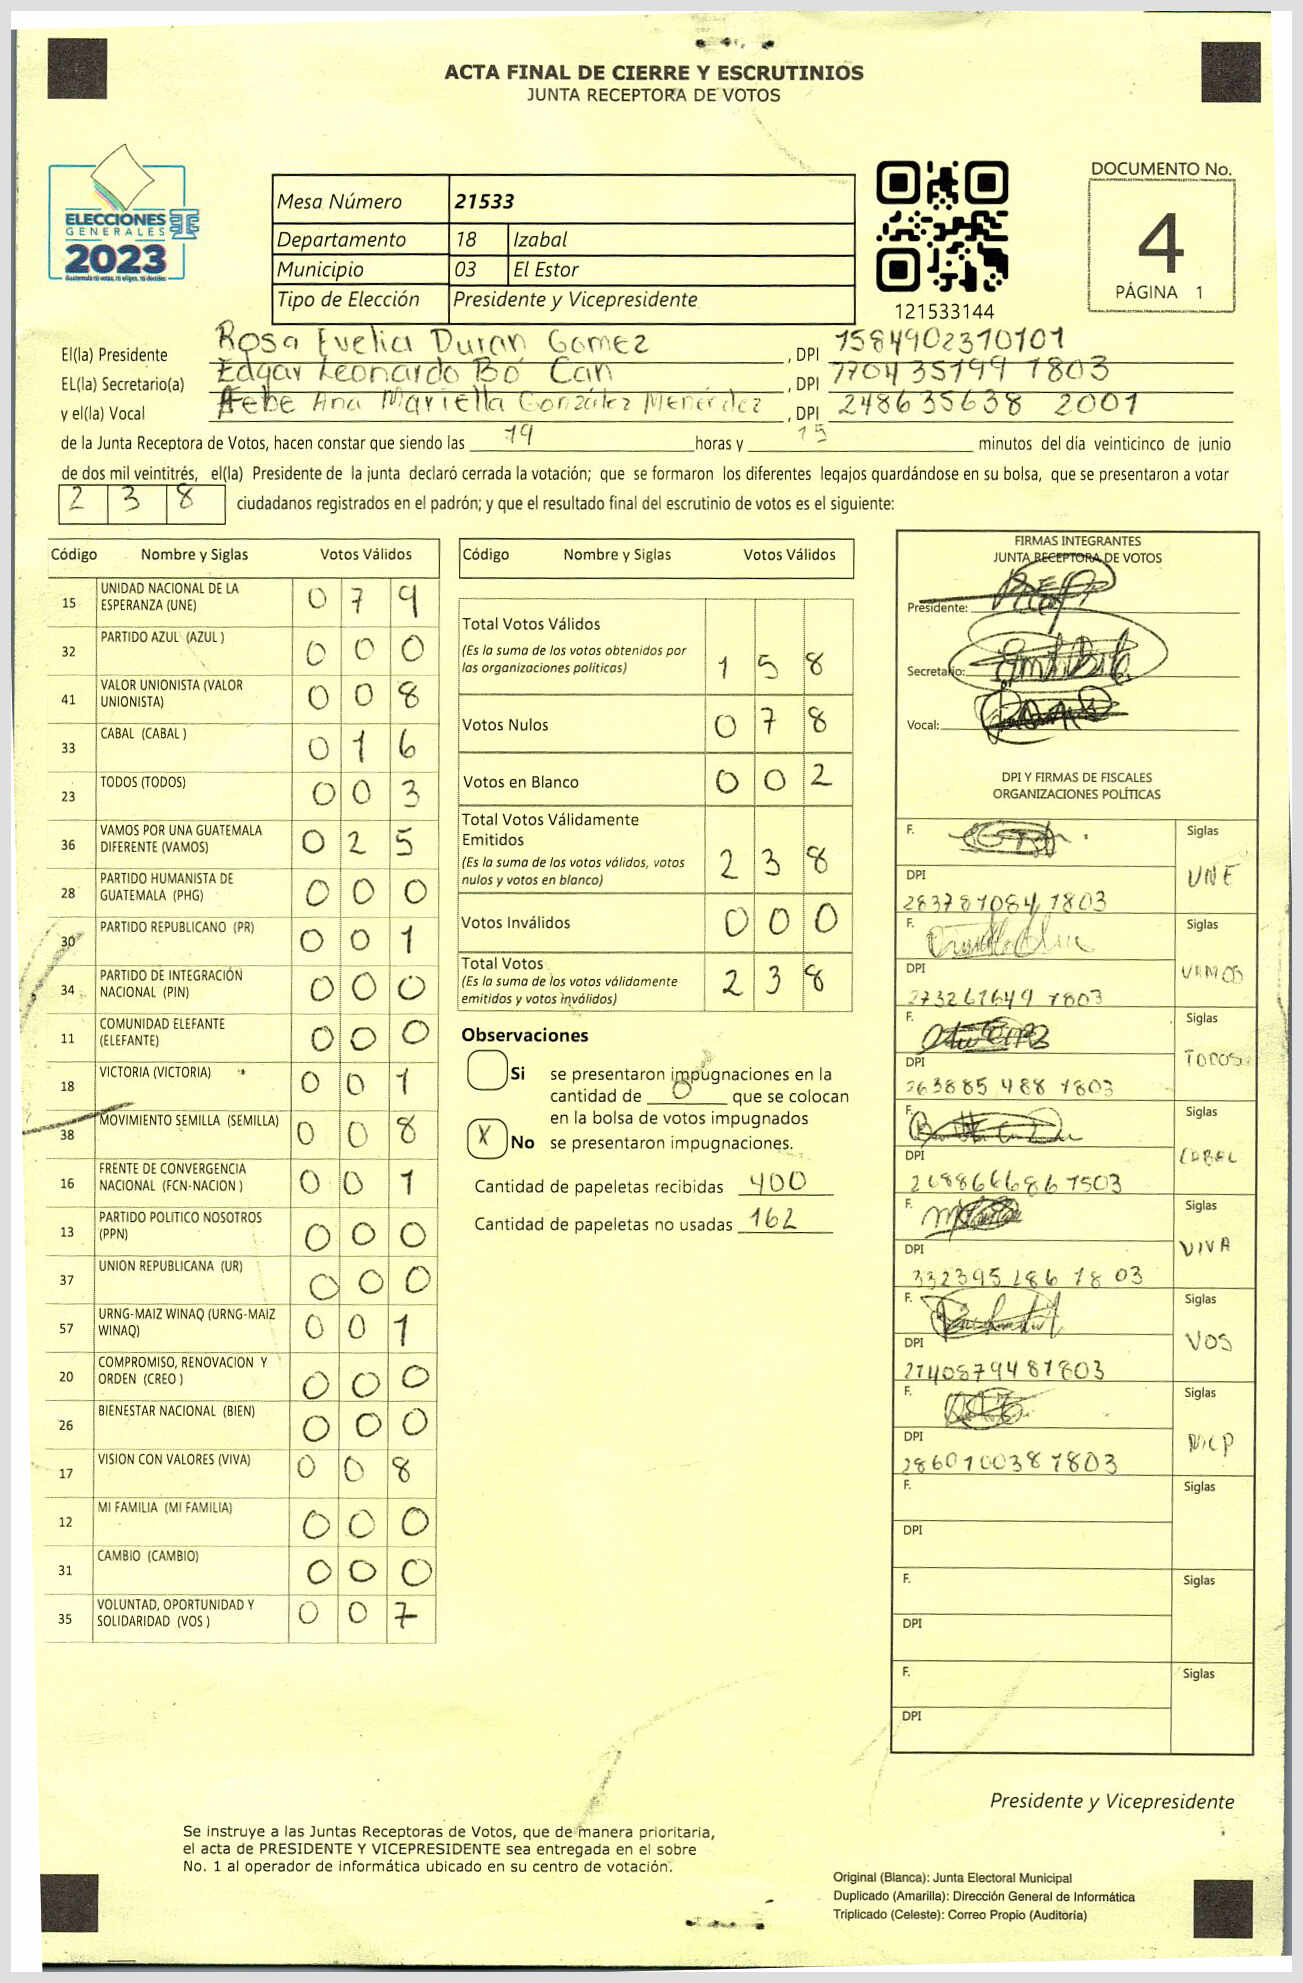 ACTA FINAL DE CIERRE Y ESCRUTINIOS
JUNTA RECEPTORA DE VOTOS
ELECCIONES
GENERALES
2023
Mesa Número 21533
Departamento 18 Izabal
Municipio 03 El Estor
Tipo de Elección Presidente y Vicepresidente
121533144
DOCUMENTO No.
4
PÁGINA 1
El(la) Presidente Rosa Evelia Duran Gomez, DPI 1584902310101
EL(la) Secretario(a) Edgar Leonardo Bó Can, DPI 770435199 1803
y el(la) Vocal Hebe Ana Mariella González Menéndez, DPI 248635638 2001
de la Junta Receptora de Votos, hacen constar que siendo las 19 horas y 15 minutos del día veinticinco de junio
de dos mil veintitrés, el(la) Presidente de la junta declaró cerrada la votación; que se formaron los diferentes legajos guardándose en su bolsa, que se presentaron a votar
2 3 8 ciudadanos registrados en el padrón; y que el resultado final del escrutinio de votos es el siguiente:
Código Nombre y Siglas Votos Válidos
15 UNIDAD NACIONAL DE LA ESPERANZA (UNE) 0 7 9
32 PARTIDO AZUL (AZUL ) 0 0 0
41 VALOR UNIONISTA (VALOR UNIONISTA) 0 0 8
33 CABAL (CABAL ) 0 1 6
23 TODOS (TODOS) 0 0 3
36 VAMOS POR UNA GUATEMALA DIFERENTE (VAMOS) 0 2 5
28 PARTIDO HUMANISTA DE GUATEMALA (PHG) 0 0 0
30 PARTIDO REPUBLICANO (PR) 0 0 1
34 PARTIDO DE INTEGRACIÓN NACIONAL (PIN) 0 0 0
11 COMUNIDAD ELEFANTE (ELEFANTE) 0 0 0
18 VICTORIA (VICTORIA) 0 0 1
38 MOVIMIENTO SEMILLA (SEMILLA) 0 0 8
16 FRENTE DE CONVERGENCIA NACIONAL (FCN-NACION ) 0 0 1
13 PARTIDO POLITICO NOSOTROS (PPN) 0 0 0
37 UNION REPUBLICANA (UR) 0 0 0
57 URNG-MAIZ WINAQ (URNG-MAIZ WINAQ) 0 0 1
20 COMPROMISO, RENOVACION Y ORDEN (CREO ) 0 0 0
26 BIENESTAR NACIONAL (BIEN) 0 0 0
17 VISION CON VALORES (VIVA) 0 0 8
12 MI FAMILIA (MI FAMILIA) 0 0 0
31 CAMBIO (CAMBIO) 0 0 0
35 VOLUNTAD, OPORTUNIDAD Y SOLIDARIDAD (VOS ) 0 0 7
Código Nombre y Siglas Votos Válidos
Total Votos Válidos 1 5 8
(Es la suma de los votos obtenidos por
las organizaciones políticas)
Votos Nulos 0 7 8
Votos en Blanco 0 0 2
Total Votos Válidamente
Emitidos 2 3 8
(Es la suma de los votos válidos, votos
nulos y votos en blanco)
Votos Inválidos 0 0 0
Total Votos 2 3 8
(Es la suma de los votos válidamente
emitidos y votos inválidos)
Observaciones
Si se presentaron impugnaciones en la
cantidad de 0 que se colocan
en la bolsa de votos impugnados
X No se presentaron impugnaciones.
Cantidad de papeletas recibidas 400
Cantidad de papeletas no usadas 162
FIRMAS INTEGRANTES
JUNTA RECEPTORA DE VOTOS
Presidente:
Secretario:
Vocal:
DPI Y FIRMAS DE FISCALES
ORGANIZACIONES POLÍTICAS
F. Siglas
DPI UNE
283781084 1803
F. Siglas
DPI VAMOS
273261649 1803
F. Siglas
DPI TODOS
263885 488 1803
F. Siglas
DPI CABAL
268866686 1503
F. Siglas
DPI VIVA
332395286 1803
F. Siglas
DPI VOS
2740879481803
F. Siglas
DPI
2860100381803
F. Siglas
DPI
F. Siglas
DPI
F. Siglas
DPI
Presidente y Vicepresidente
Se instruye a las Juntas Receptoras de Votos, que de manera prioritaria,
el acta de PRESIDENTE Y VICEPRESIDENTE sea entregada en el sobre
No. 1 al operador de informática ubicado en su centro de votación.
Original (Blanca): Junta Electoral Municipal
Duplicado (Amarilla): Dirección General de Informática
Triplicado (Celeste): Correo Propio (Auditoría)